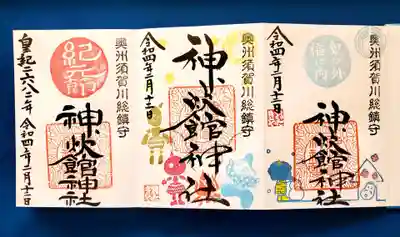 鬼は外
福は内
奥州須賀川総鎮守
神炊館神社
令和四年二月十二日
奥州須賀川総鎮守
神炊館神社
令和四年二月十二日
奥州須賀川総鎮守
神炊館神社
皇紀二六八二年 令和四年二月十二日